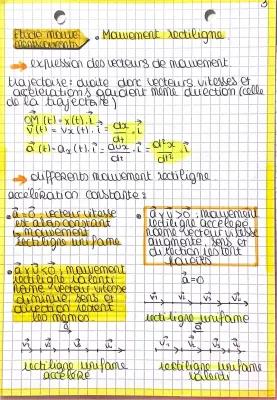 Etude mouv • Mouvement rectiligne
mouvements
→ expression des vecteurs de mouvement.
trajectoire : droite donc vecteurs vitesses et
accélérations gardent même direction (celle
de la trajectoire)
OM (t) = x(t).i
v(t) = vx(t).i = dx/dt . i
a(t) = ax(t).i = dvx/dt . i = d²x/dt² . i
→ différents mouvement rectiligne.
accélération constante :
• a = 0, vecteur vitesse
est alors constant
↳ mouvement
rectiligne uniforme
• a x v > 0, mouvement
rectiligne accéléré
norme vecteur vitesse
augmente, sens et
direction restent
• a x v < 0, mouvement
rectiligne ralenti
norme vecteur vitesse
diminue, sens et
direction restent
les mêmes
a = 0
v1 v2 v3 v4
rectiligne uniforme
a
v1 v2 v3
rectiligne uniforme
accéléré
a
v1 v2 v3 v4
rectiligne uniforme
ralenti